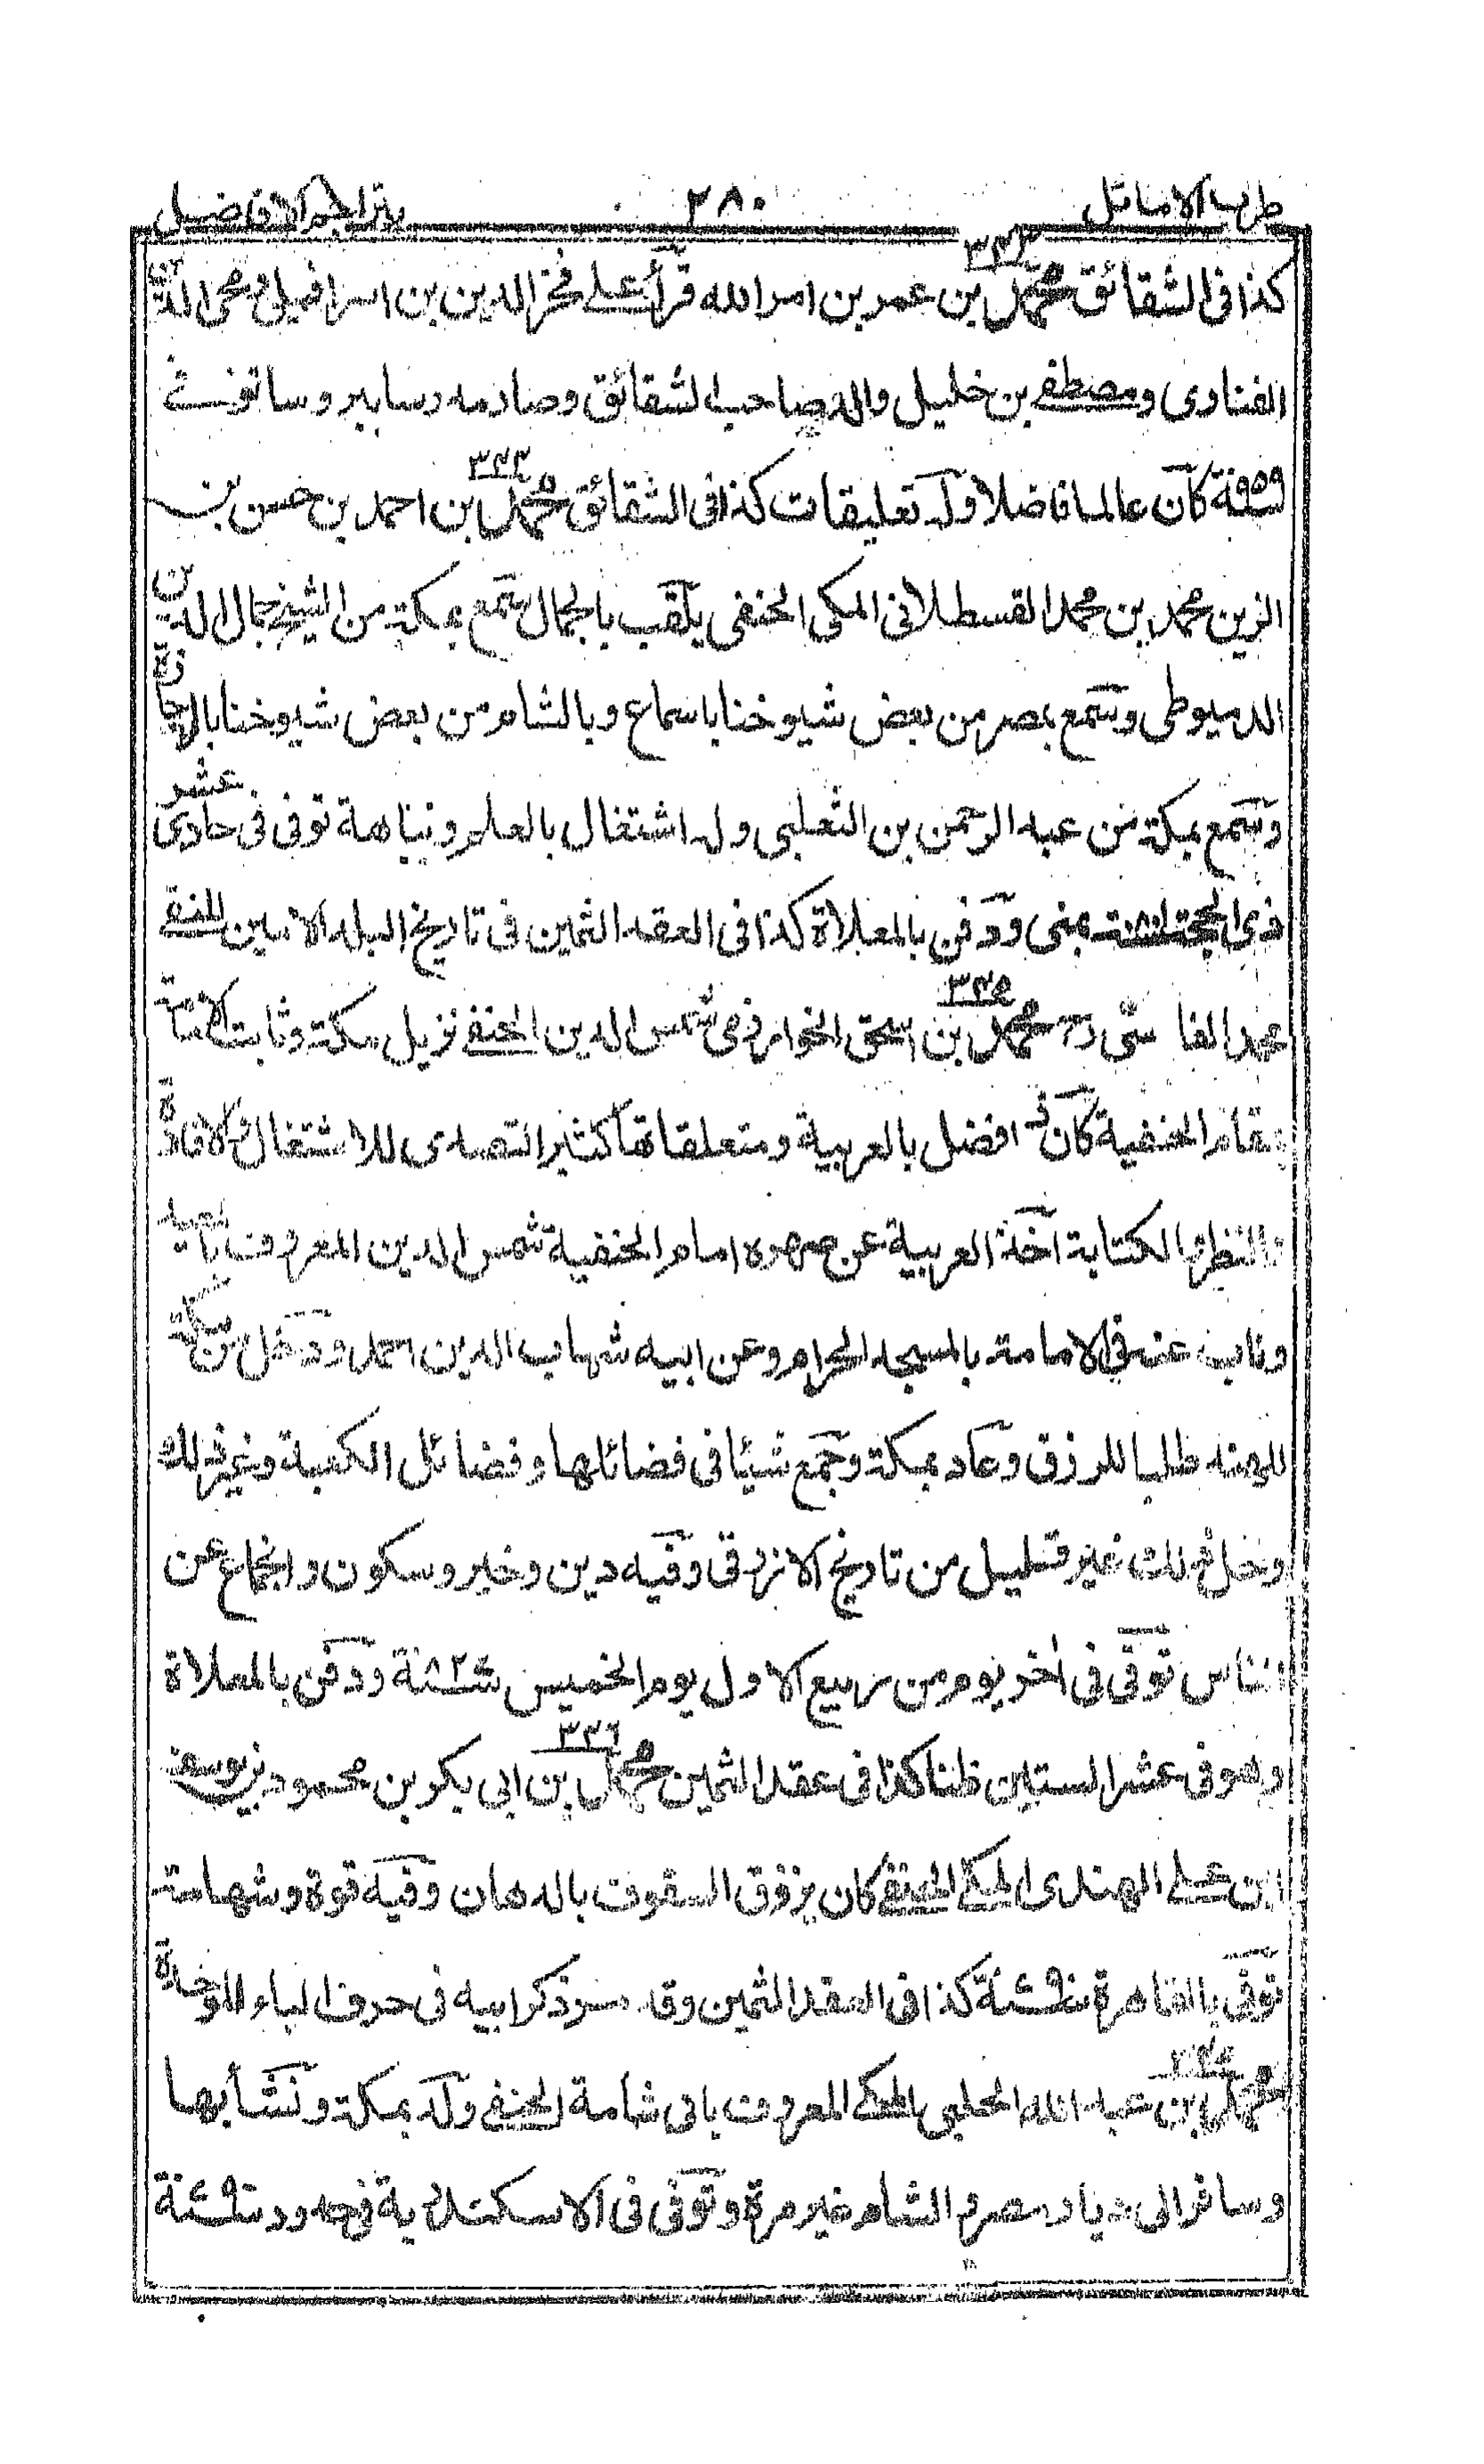 طرب الاماثل ٢٨٠ بتراجم الافاضل
٣٤٣
كذا فى الشقائق محمد بن عمر بن امر الله قرأ على فخر الدين بن اسرافيل و محى الدين
الفنارى و مصطفى بن خليل والد صاحب الشقائق وصار مدرسا بها وسا توفى
٩٥٩ سنة كان عالما فاضلا وله تعليقات كذا فى الشقائق ٣٤٤ محمد بن احمد بن حسن بن
الزين محمد بن محمد القسطلانى المكى الحنفى يلقب بالجمال سمع بمكة من الشيخ جمال الدين
الدميوطى وسمع بمصر من بعض شيوخنا باسماع وبالشام من بعض شيوخنا بالاجازة
وسمع بمكة من عبد الرحمن بن الثعلبى وله اشتغال بالعلم ونباهة توفى فى حادى عشر
ذى الحجة سنة بمنى ودفن بالمعلاة كذا فى العقد الثمين فى تاريخ البلد الامين للتقى
محمد الفاسى ٣٤٥ محمد بن اسحق الخوارزمى شمس الدين الحنفى نزيل مكة ونائب الامامة
بمقام الحنفية كان افضل بالعربية ومتعلقاتها كثير التصدى للاشتغال والافادة
والنظر والكتابة اخذ العربية عن صهره امام الحنفية شمس الدين المعروف بالمعيد
وناب عنه فى الامامة بالمسجد الحرام وعن ابيه شهاب الدين احمد ودخل من مكة
للهند طلبا للرزق وعاد بمكة وجمع شيئا فى فضائلها وفضائل الكعبة وغير ذلك
وخل فى ذلك غير قليل من تاريخ الازرقى وفيه دين وخير وسكون وانجماع عن
الناس توفى فى اخر يوم من ربيع الاول يوم الخميس سنة ٨٢٧ ودفن بالمعلاة
وهو فى عشر الستين ظنا كذا فى عقد الثمين ٣٤٦ محمد بن ابى بكر بن محمود بن يوسف
ابن على الهندى المكى الحنفى كان يزوق السقوف بالدهان وفيه قوة وشهامة
توفى بالقاهرة سنة كذا فى العقد الثمين وقد مر ذكر ابيه فى حرف الباء الموحدة
محمد بن عبد الله الحلبى المكى المعروف بابى شامة الحنفى ولد بمكة ونشأ بها
وسافر الى ديار مصر والشام غير مرة وتوفى فى الاسكندرية فى حدود سنة